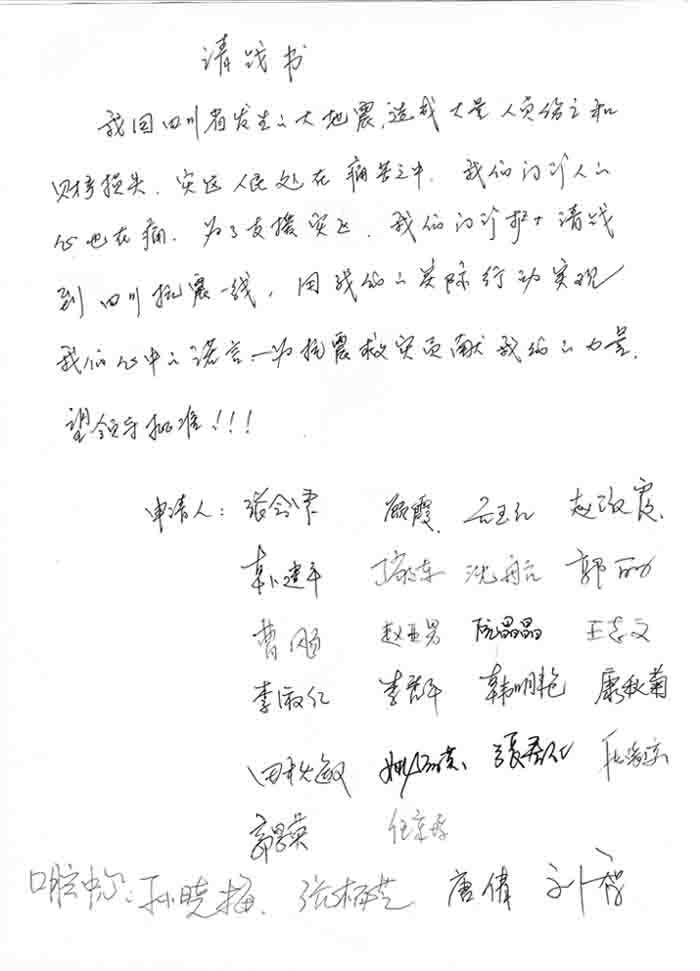 请战书
我国四川省发生的大地震,造成大量人员伤亡和
财产损失.灾区人民处在痛苦之中.我们门诊人的
心也在痛.为了支援灾区.我们门诊护士请战
到四川抗震一线,用我们的实际行动实现
我们心中的诺言.—为抗震救灾贡献我们的力量.
望领导批准!!!
申请人:张会 顾霞 石玉红 赵改霞
建平 沈 郭
曹 赵亚男 阮晶晶 王志文
李淑红 李 韩明艳 康秋菊
田秋敏 張
郭
口腔中心:孙晓梅.张杨芝 唐倩